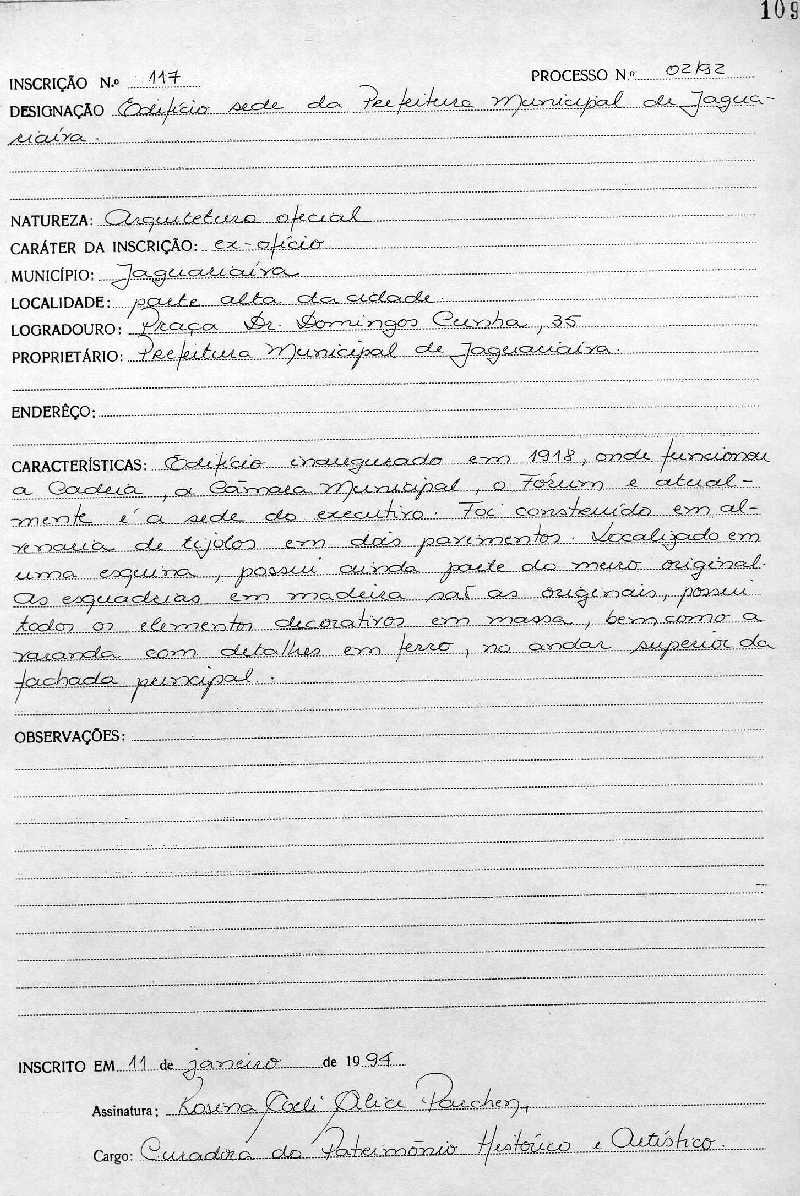 109
INSCRIÇÃO N.º 117 PROCESSO N.º 02/92
DESIGNAÇÃO Edifício sede da Prefeitura Municipal de Jagua-
riaíva.
NATUREZA: Arquitetura oficial
CARÁTER DA INSCRIÇÃO: ex-ofício
MUNICÍPIO: Jaguariaíva
LOCALIDADE: parte alta da cidade
LOGRADOURO: Praça Dr. Domingos Cunha, 35
PROPRIETÁRIO: Prefeitura Municipal de Jaguariaíva.
ENDERÊÇO:
CARACTERÍSTICAS: Edifício inaugurado em 1918, onde funcionou
a Cadeia, a Câmara Municipal, o Fórum e atual-
mente é a sede do executivo. Foi construído em al-
venaria de tijolos em dois pavimentos. Localizado em
uma esquina, possui ainda parte do muro original.
As esquadrias em madeira são as originais, possui
todos os elementos decorativos em massa, bem como a
varanda com detalhes em ferro, no andar superior da
fachada principal.
OBSERVAÇÕES:
INSCRITO EM 11 de janeiro de 1994
Assinatura: Rosina Coeli Alice Parchen
Cargo: Curadora do Patrimônio Histórico e Artístico.